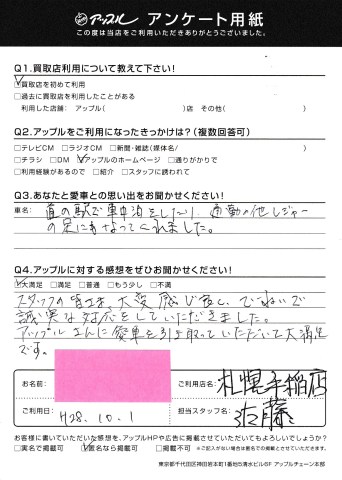 アップル アンケート用紙
この度は当店をご利用いただきありがとうございました。
Q1.買取店利用について教えて下さい!
☑買取店を初めて利用
□過去に買取店を利用したことがある
利用した店舗: アップル( )店 その他( )
Q2.アップルをご利用になったきっかけは?(複数回答可)
□テレビCM □ラジオCM □新聞・雑誌(媒体名/ )
□チラシ □DM ☑アップルのホームページ □通りがかりで
□利用経験があるので □紹介 □スタッフに誘われて
Q3.あなたと愛車との思い出をお聞かせください!
車名:
道の駅で車中泊をしたり、通勤の他レジャー
の足にもなってくれました。
Q4.アップルに対する感想をぜひお聞かせください!
☑大満足 □満足 □普通 □もう少し □不満
スタッフの皆さま、大変感じ良く、ていねいで
誠実な対応をしていただきました。
アップルさんに愛車を引き取っていただいて大満足
です。
お名前:
ご利用店名: 札幌手稲店
ご利用日: H28.10.1
担当スタッフ名: 佐藤
お客様に書いていただいた感想を、アップルHPや広告に掲載させていただいてもよろしいでしょうか?
□実名で掲載可 ☑匿名なら掲載可 □掲載不可 ※ご記入がない場合は匿名での掲載とさせていただきます。
東京都千代田区神田岩本町1番地5清水ビル5F アップルチェーン本部